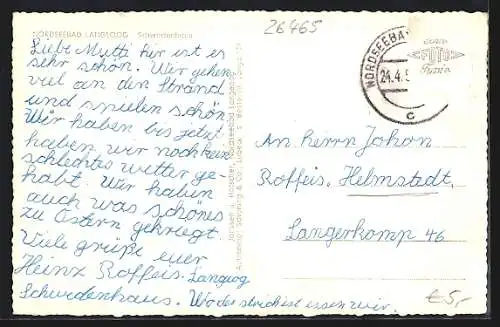 NORDSEEBAD LANGEOOG Schwedenhaus
26465
Liebe Mutti hir ist es
sehr schön. Wir gehen
viel an den Strand
und spielen schön.
Wir haben bis jetzt
haben wir noch kein
schlechtes wetter ge-
habt. Wir haben
auch was schönes
zu Ostern gekriegt.
Viele grüße euer
Heinz Roffeis. Langeog
Schwedenhaus. Wo der strich ist essen wir.
NORDSEEBA
24.4.5
c
FOTO
An Herrn Johan
Roffeis. Helmstedt.
Langerkamp 46
€5,-